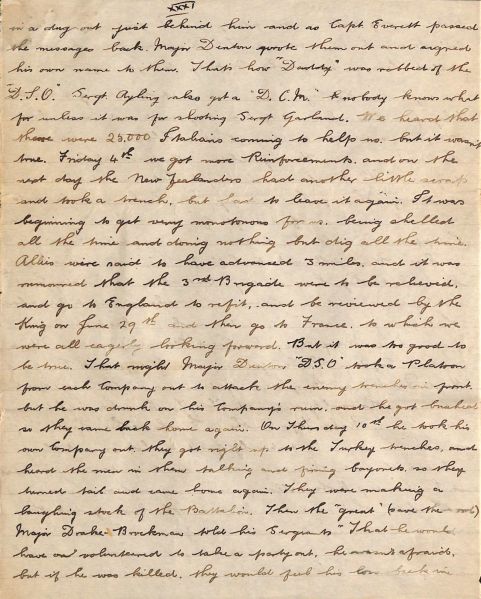 XXXI
in a dug out just behind him and as Capt. Everett passed
the messages back. Major Denton wrote them out and signed
his own name to them. Thats how "Daddy" was robbed of the
D.S.O." Sergt. Ayling also got a "D.C.M." & nobody knows what
for unless it was for shooting Sergt Garland. We heard that
there were 25.000 Italians coming to help us. but it wasn't
true. Friday 4th we got more Reinforcements, and on the
next day the New Zealanders had another little scrap
and took a trench, but had to leave it again. It was
beginning to get very monotonous for us. being shelled
all the time and doing nothing but dig all the time.
Allies were said to have advanced 3 miles, and it was
rumoured that the 3rd Brigade were to be relieved,
and go to England to refit, and be reviewed by the
King on June 29th and then go to France, to which we
were all eagerly looking forward. But it was too good to
be true. That night Major Denton "D.S.O" took a Platoon
from each Company out to attack the enemy trenches in front.
but he was drunk on his Company's rum, and he got bushed
so they came back home again. On Thursday 10th he took his
own Company out, they got right up to the Turkey trenches, and
heard the men in them talking and fixing bayonets, so they
turned tail and came home again. They were making a
laughing stock of the Battalion. Then the "great" (save the
Major Drake Brockman told his Sergeants "That he would
have volunteered to take a party out, he wasn't afraid,
but if he was killed, they would feel his loss